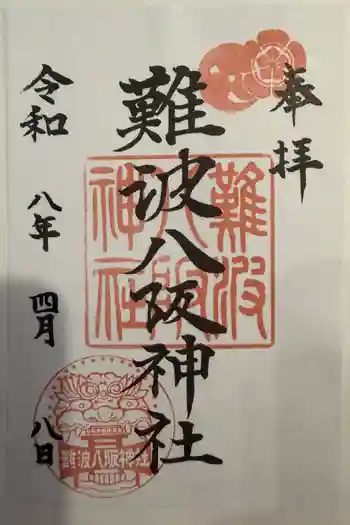 奉拝
難波八阪神社
令和八年四月八日
難波八阪神社
難波八阪神社